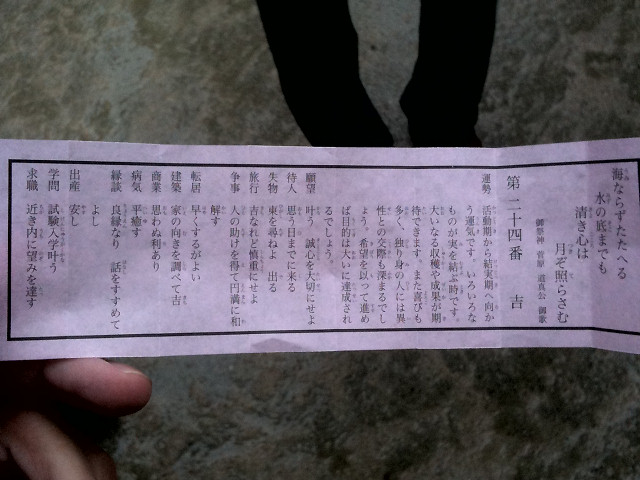 海ならずたたへる
水の底までも
清き心は
月ぞ照らさむ
御祭神 菅原 道真公 御歌
第二十四番 吉
運勢 活動期から結実期へ向か
う運気です。いろいろな
ものが実を結ぶ時です。
大いなる収穫や成果が期
待できます。また喜びも
多く、独り身の人には異
性との交際も深まるでし
ょう。希望を以って進め
ば目的は大いに達成され
るでしょう。
願望 叶う 誠心を大切にせよ
待人 思う日までに来る
失物 東を尋ねよ 出る
旅行 吉なれど慎重にせよ
争事 人の助けを得て円満に和
解す
転居 早くするがよい
建築 家の向きを調べて吉
商業 思わぬ利あり
病気 平癒す
縁談 良縁なり 話をすすめて
よし
出産 安し
学問 試験入学叶う
求職 近き内に望みを達す